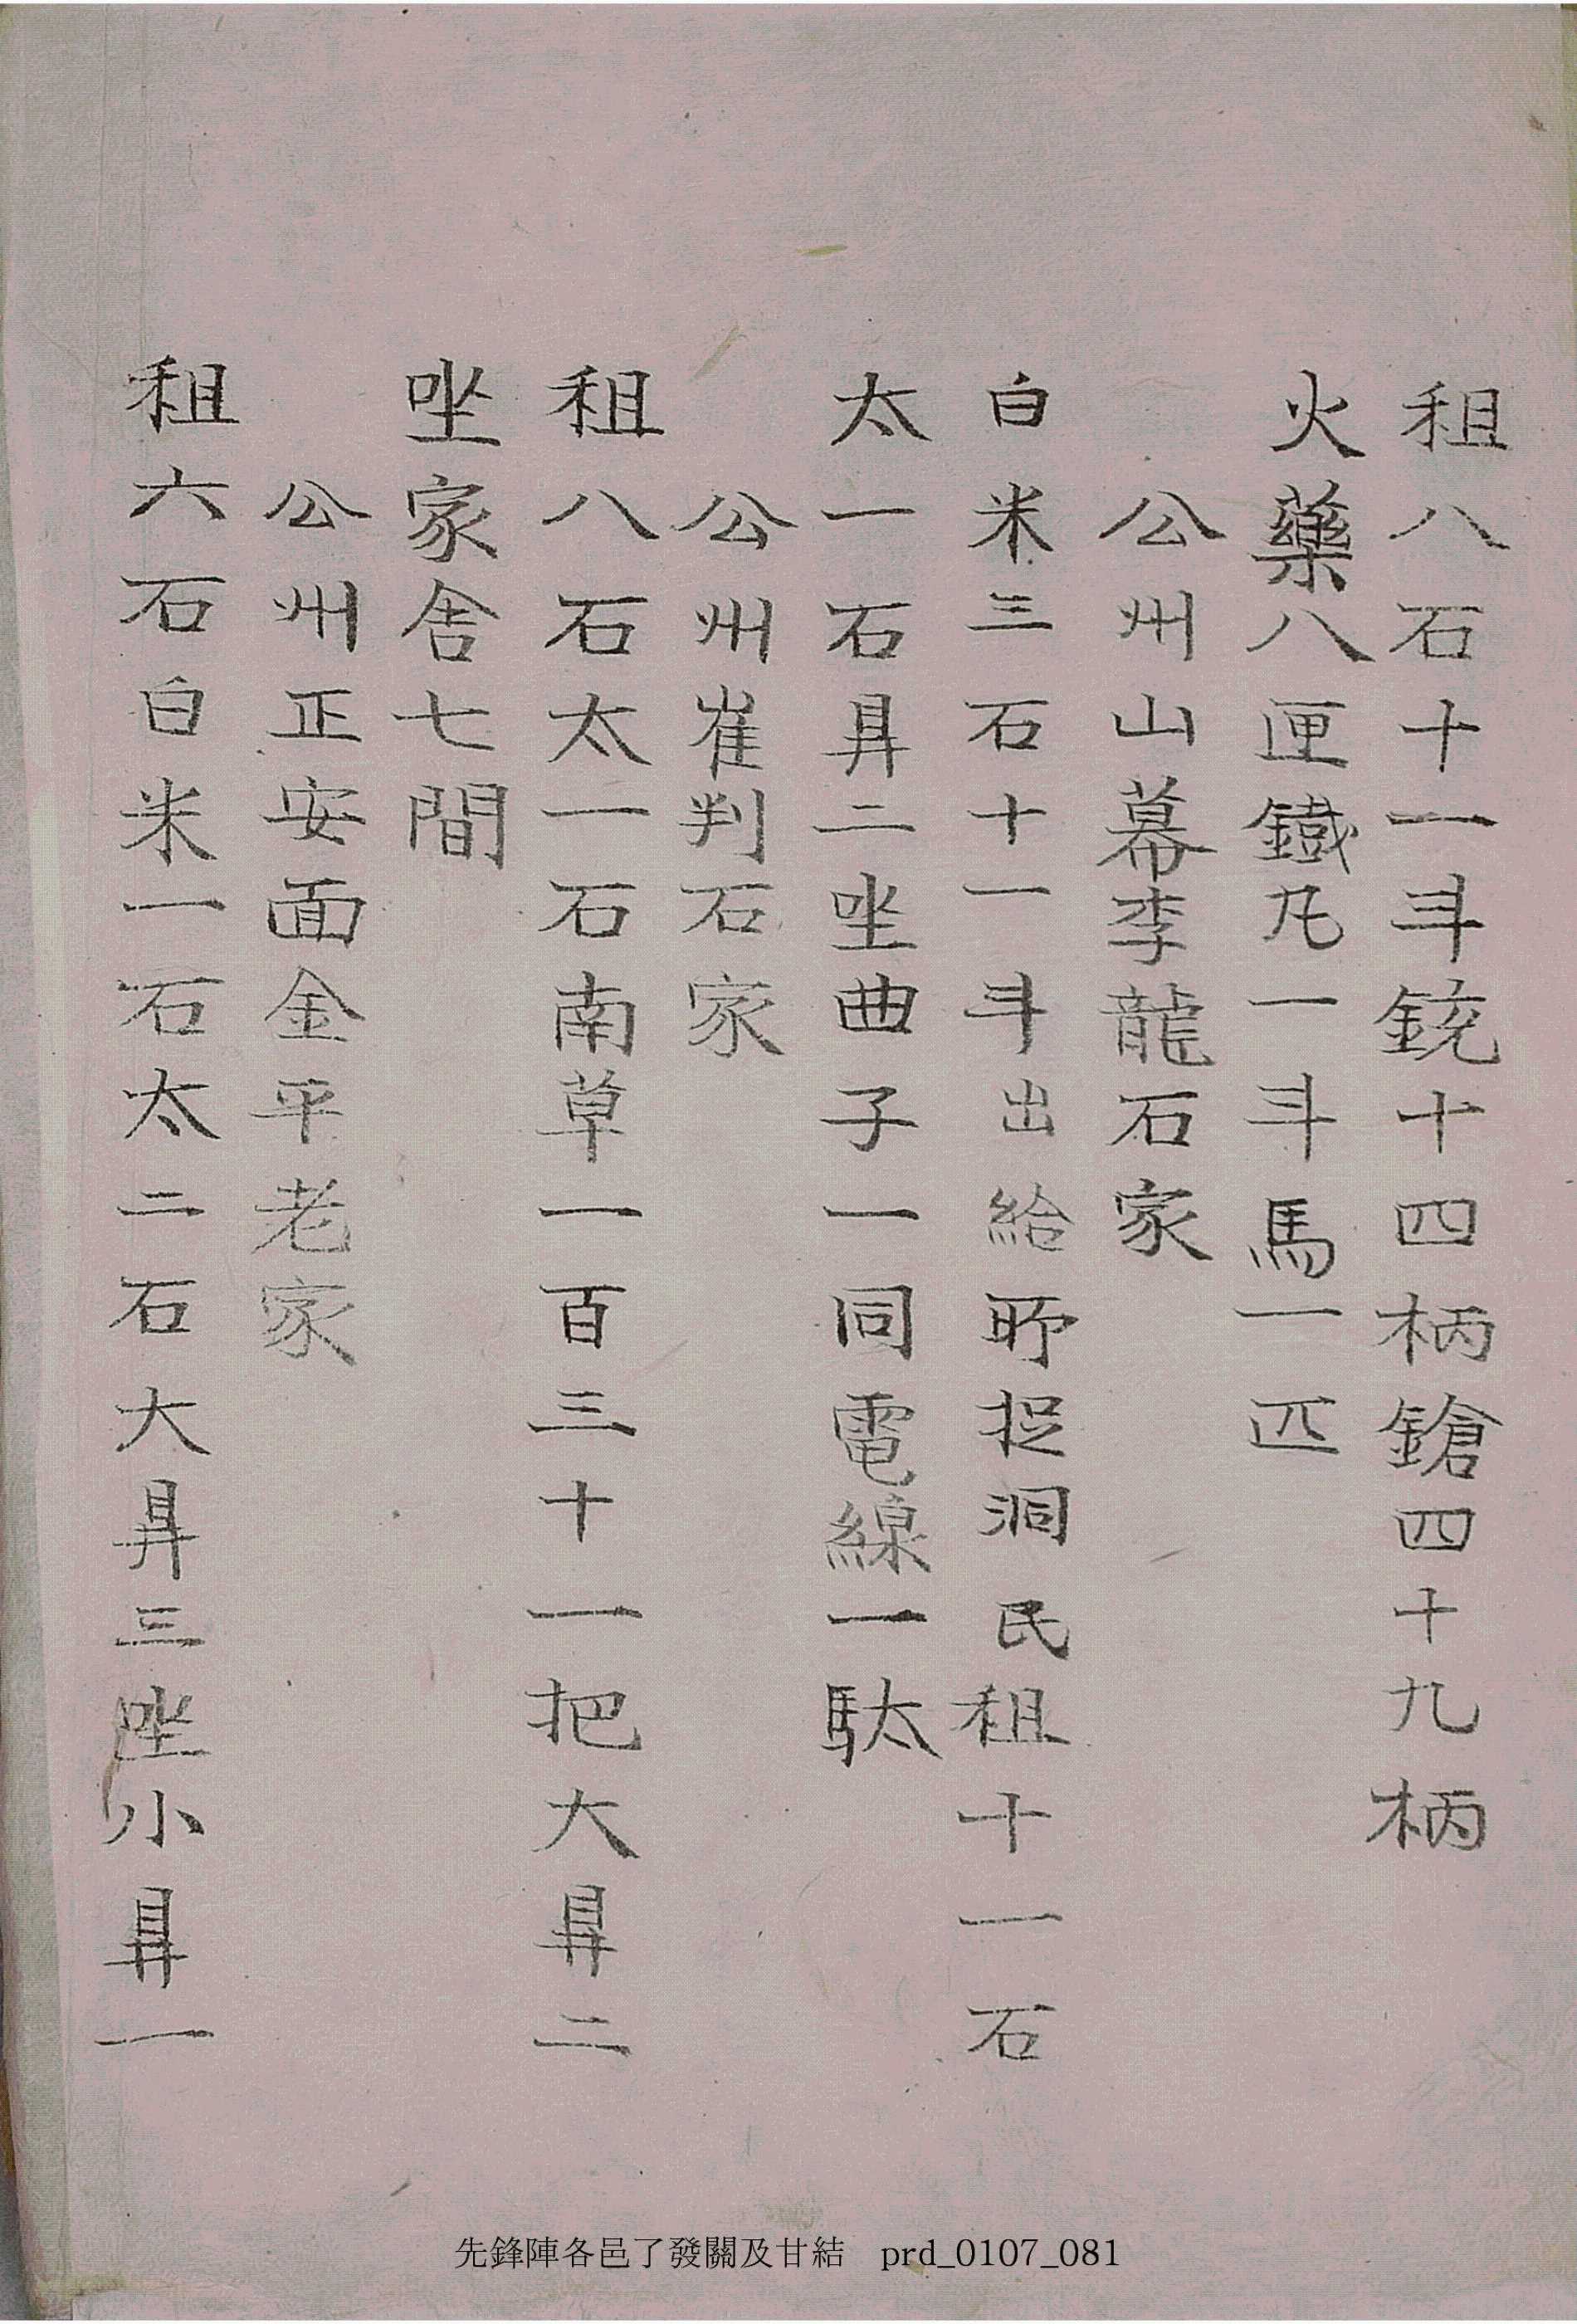 租八石十一斗銃十四柄鎗四十九柄
火藥八匣鐵丸一斗馬一匹
公州山幕李龍石家
白米三石十一斗出給所捉洞民租十一石
太一石鼎二坐曲子一同電線一駄
公州崔判石家
租八石太一石南草一百三十一把大鼎二
坐家舍七間
公州正安面金平老家
租六石白米一石太二石大鼎三坐小鼎一
先鋒陣各邑了發關及甘結 prd_0107_081